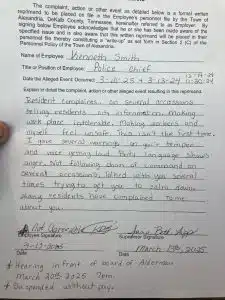 The complaint, action or other event as detailed below is a formal written
reprimand to be placed on file in the Employee's personnel file by the Town of
Alexandria, DeKalb County, Tennessee, (hereinafter referred to as Employer). By
signing below Employee acknowledges that he or she has been made aware of the
specified issue and is also aware that this written reprimand will be placed in their
personnel file thereby constituting a "write-up" as set forth in Section 2 (C) of the
Personnel Policy of the Town of Alexandria.
Name of Employee: Kenneth Smith
Title or Position of Employee: Police Chief
Date the Alleged Event Occurred: 3-10-25 & 3-13-24
Explain in detail the complaint, action or other alleged event resulting in this reprimand:
Resident complaints on several occassions
telling residents info. Making
work place intolerable. Making workers and
myself feel unsafe. This isn't the first time.
I gave several warnings on your temper
and voice getting loud. Body Language shows
anger. Not following chain of command on
several occasions, talked with you several
times trying to get you to calm down.
Many residents have complained to me
about you.
Employee Signature
Supervisor Signature
3-12-2025
March 13th, 2025
Date
Date
* Hearing in front of board of Alderman
March 20th 2025 7pm.
* Suspended without pay.